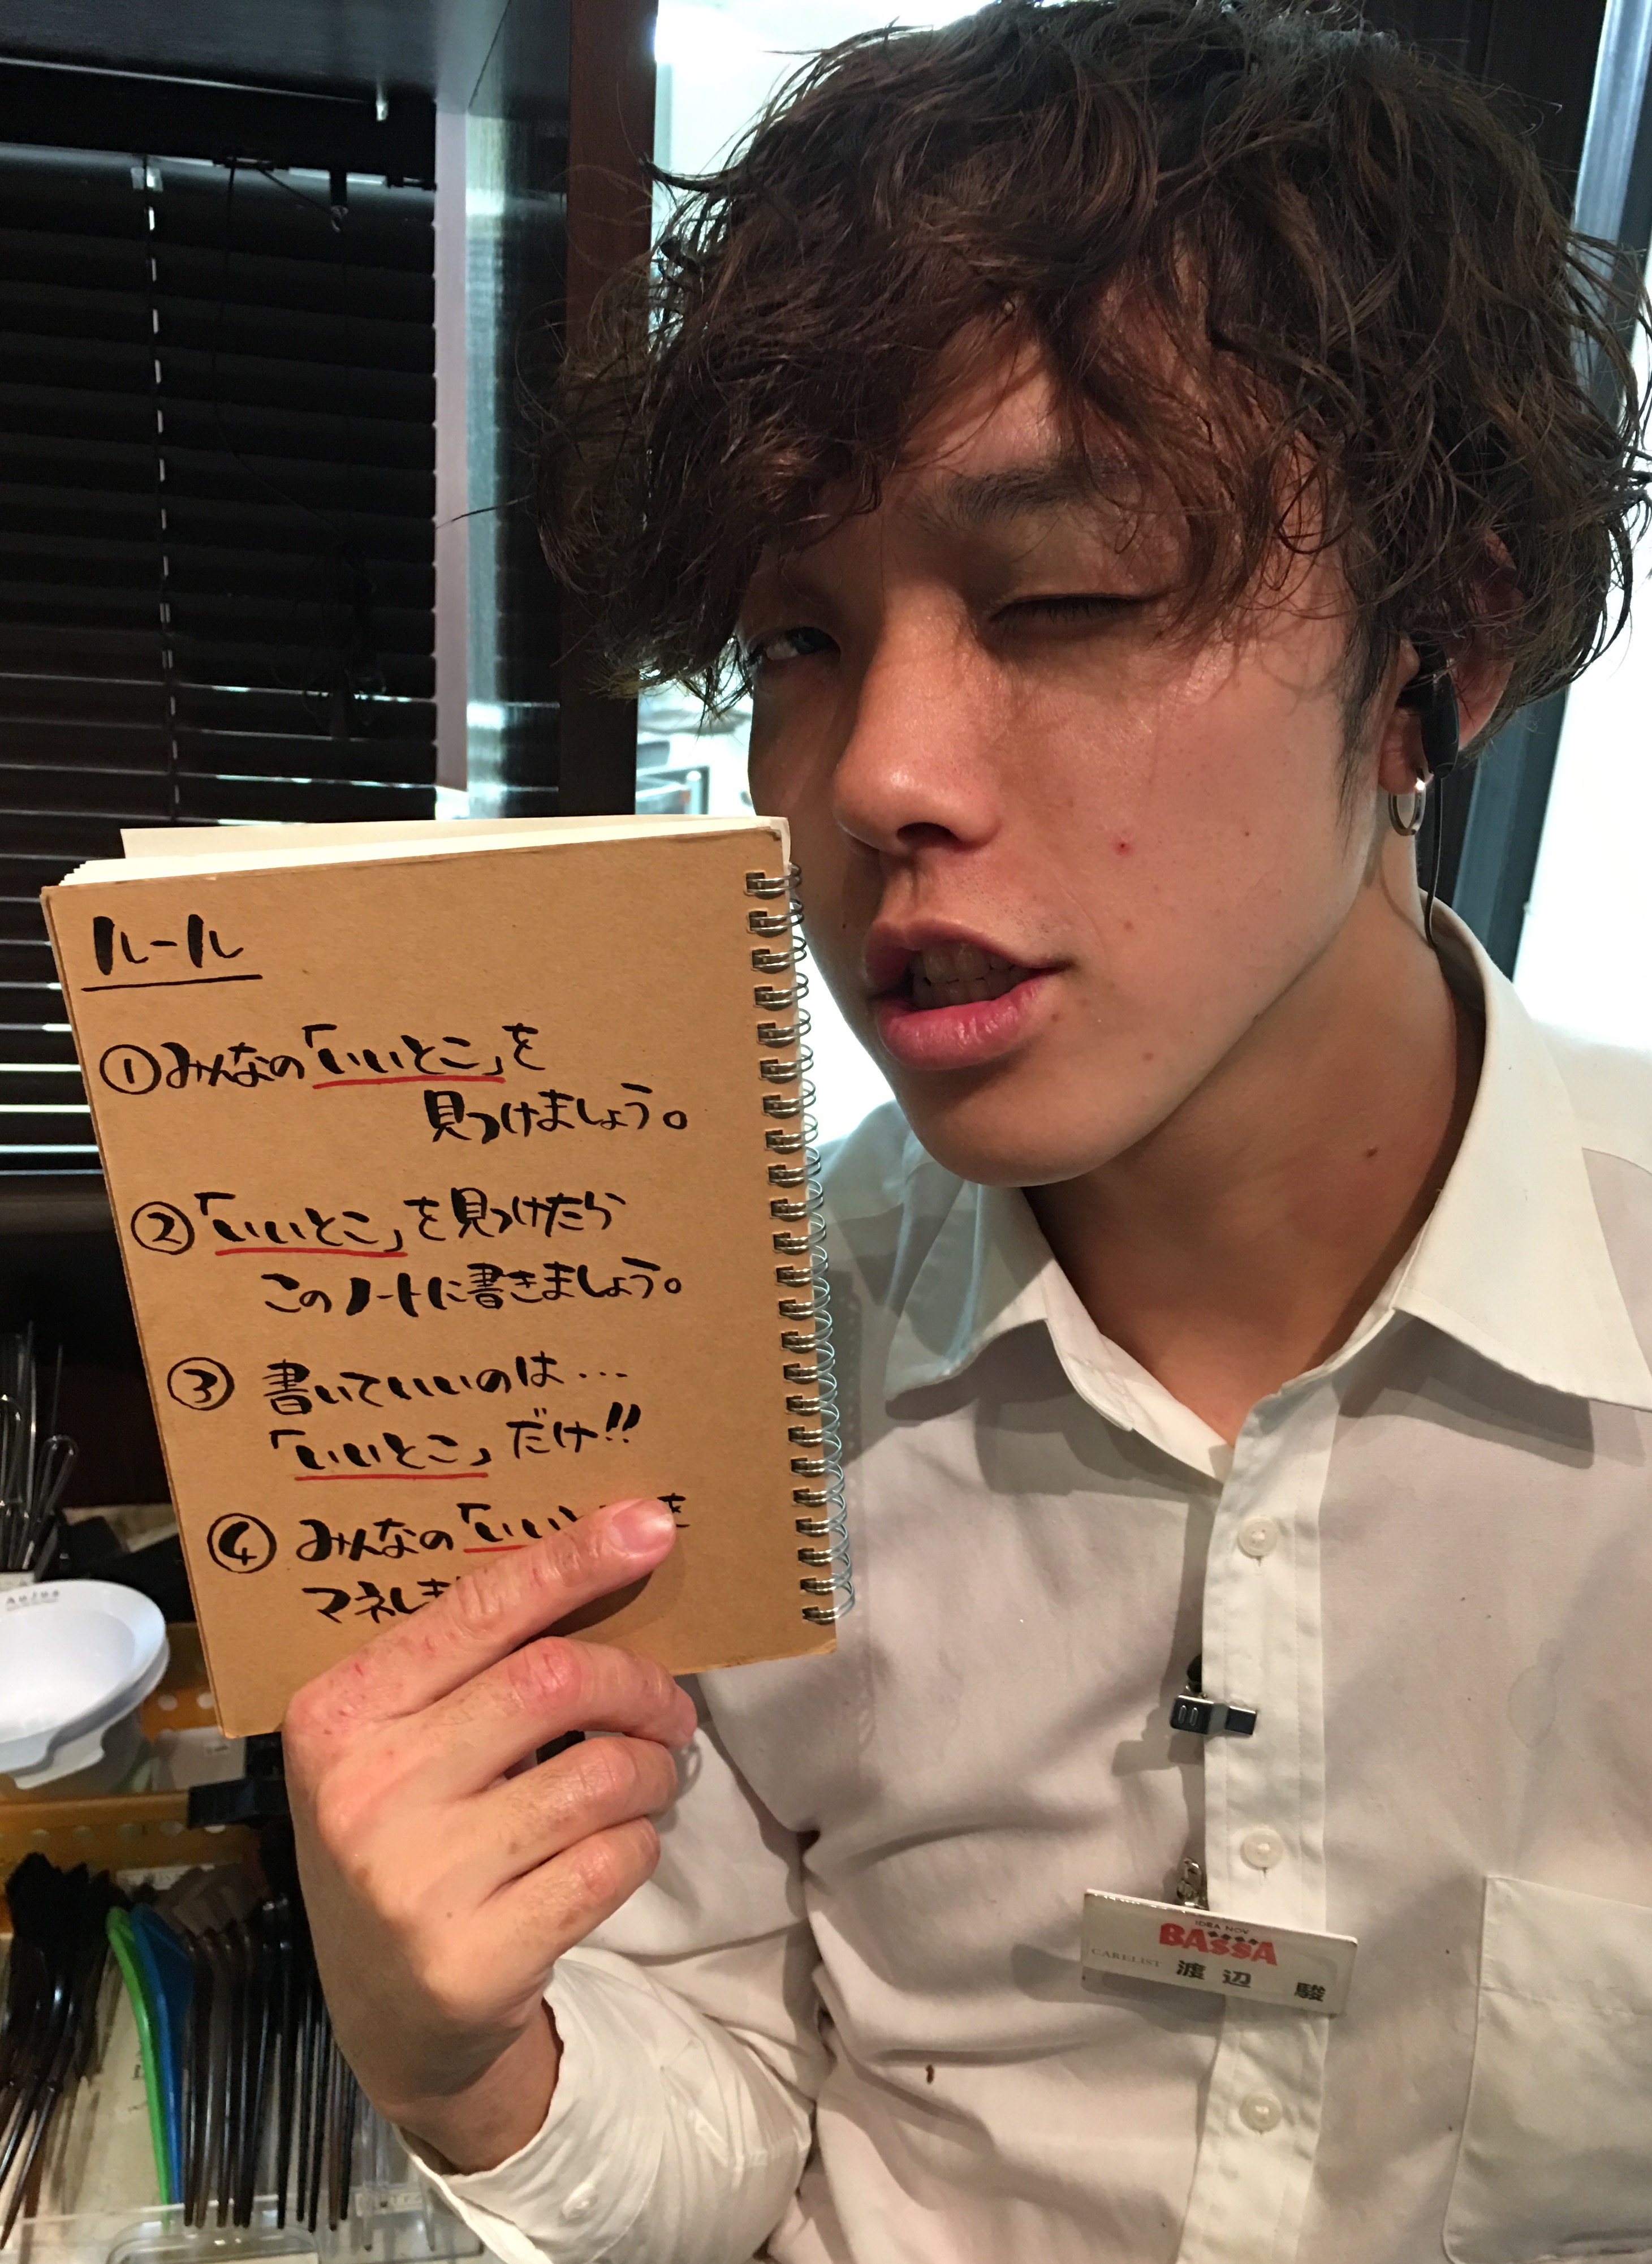 ルール
①みんなの「いいとこ」を
見つけましょう。
②「いいとこ」を見つけたら
このノートに書きましょう。
③ 書いていいのは...
「いいとこ」だけ!!
④ みんなの「いい を
マネしま
IDEA NOV
BASSA
CARELIST 渡辺 駿